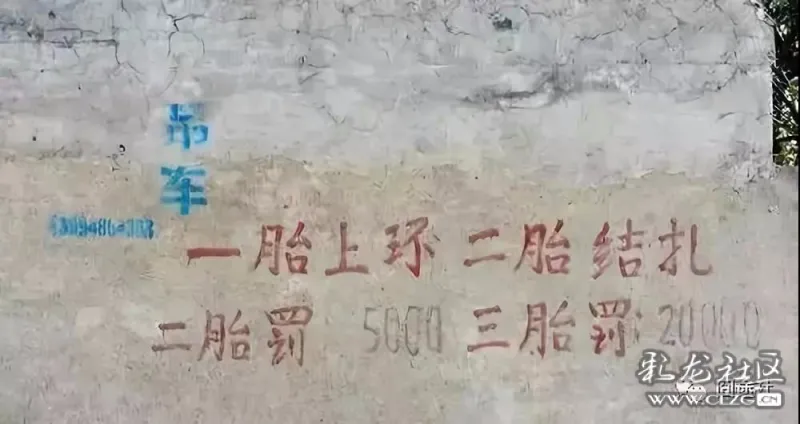 吊车
一胎上环 二胎结扎
二胎罚 5000 三胎罚 20000
彩龙社区
WWW.CLZG.CN